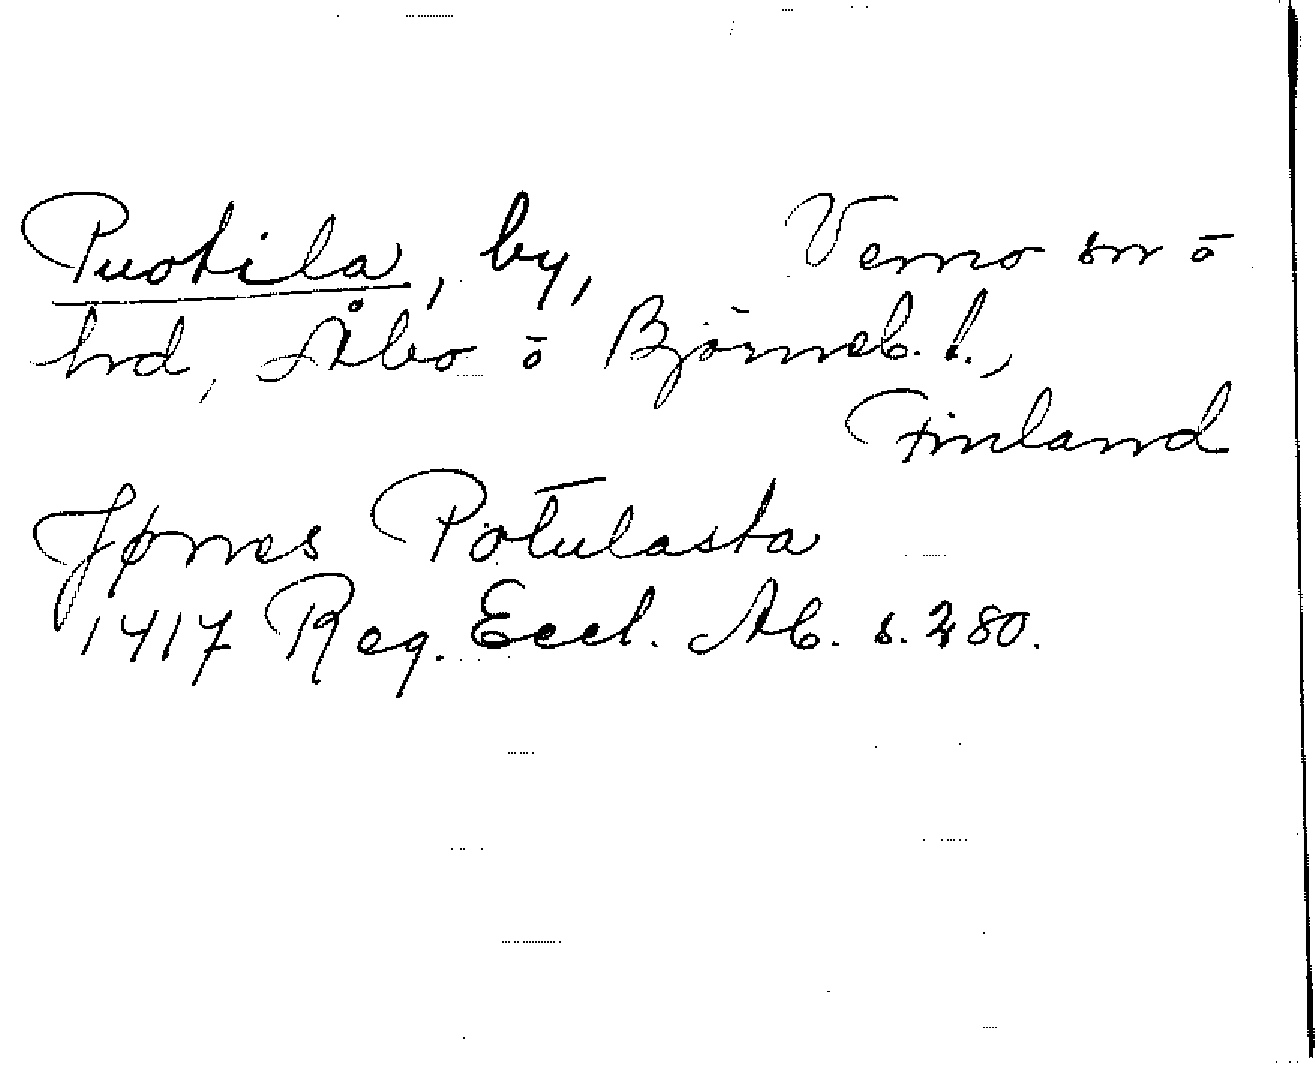 Puotila, by, Vemo sn ō
hd, Åbo ō Björneb. l.,
Finland
Jønes Potulasta
1417 Reg. Eccl. Ab. s. 280.